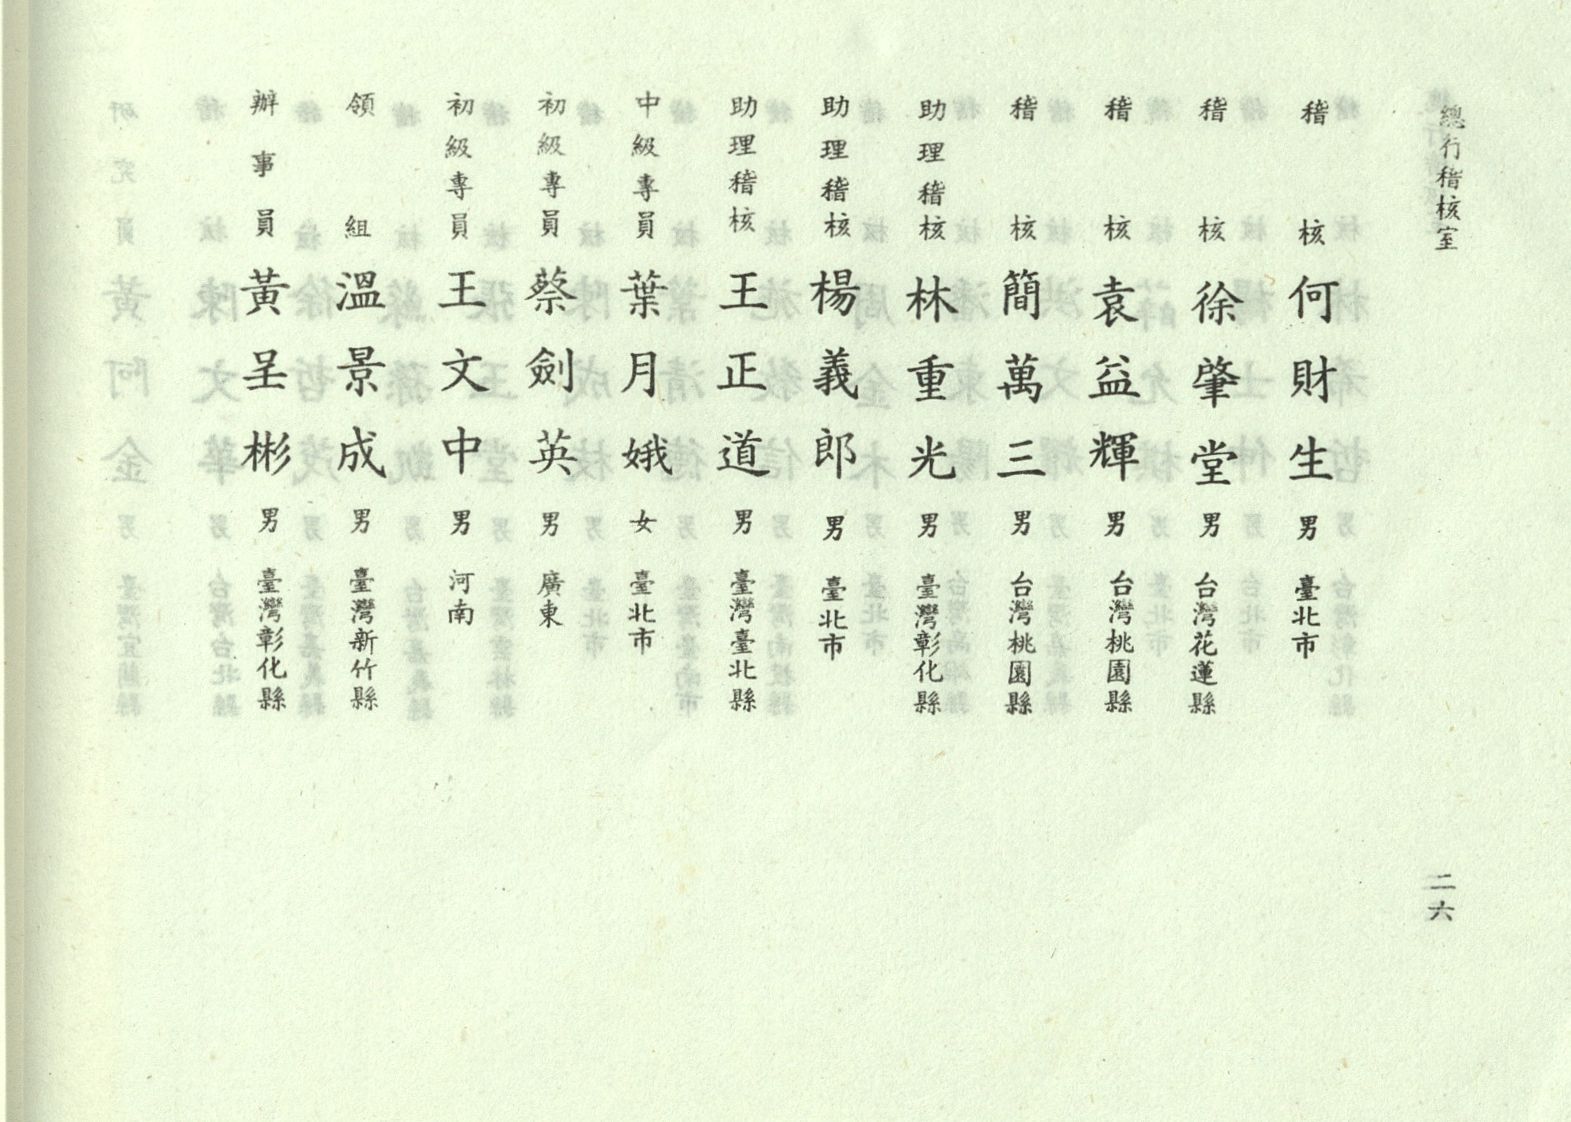 總行稽核室
二六
稽核 何財生 男 臺北市
稽核 徐肇堂 男 台灣花蓮縣
稽核 袁益輝 男 台灣桃園縣
稽核 簡萬三 男 台灣桃園縣
助理稽核 林重光 男 臺灣彰化縣
助理稽核 楊義郎 男 臺北市
助理稽核 王正道 男 臺灣臺北縣
中級專員 葉月娥 女 臺北市
初級專員 蔡劍英 男 廣東
初級專員 王文中 男 河南
領組 溫景成 男 臺灣新竹縣
辦事員 黃呈彬 男 臺灣彰化縣